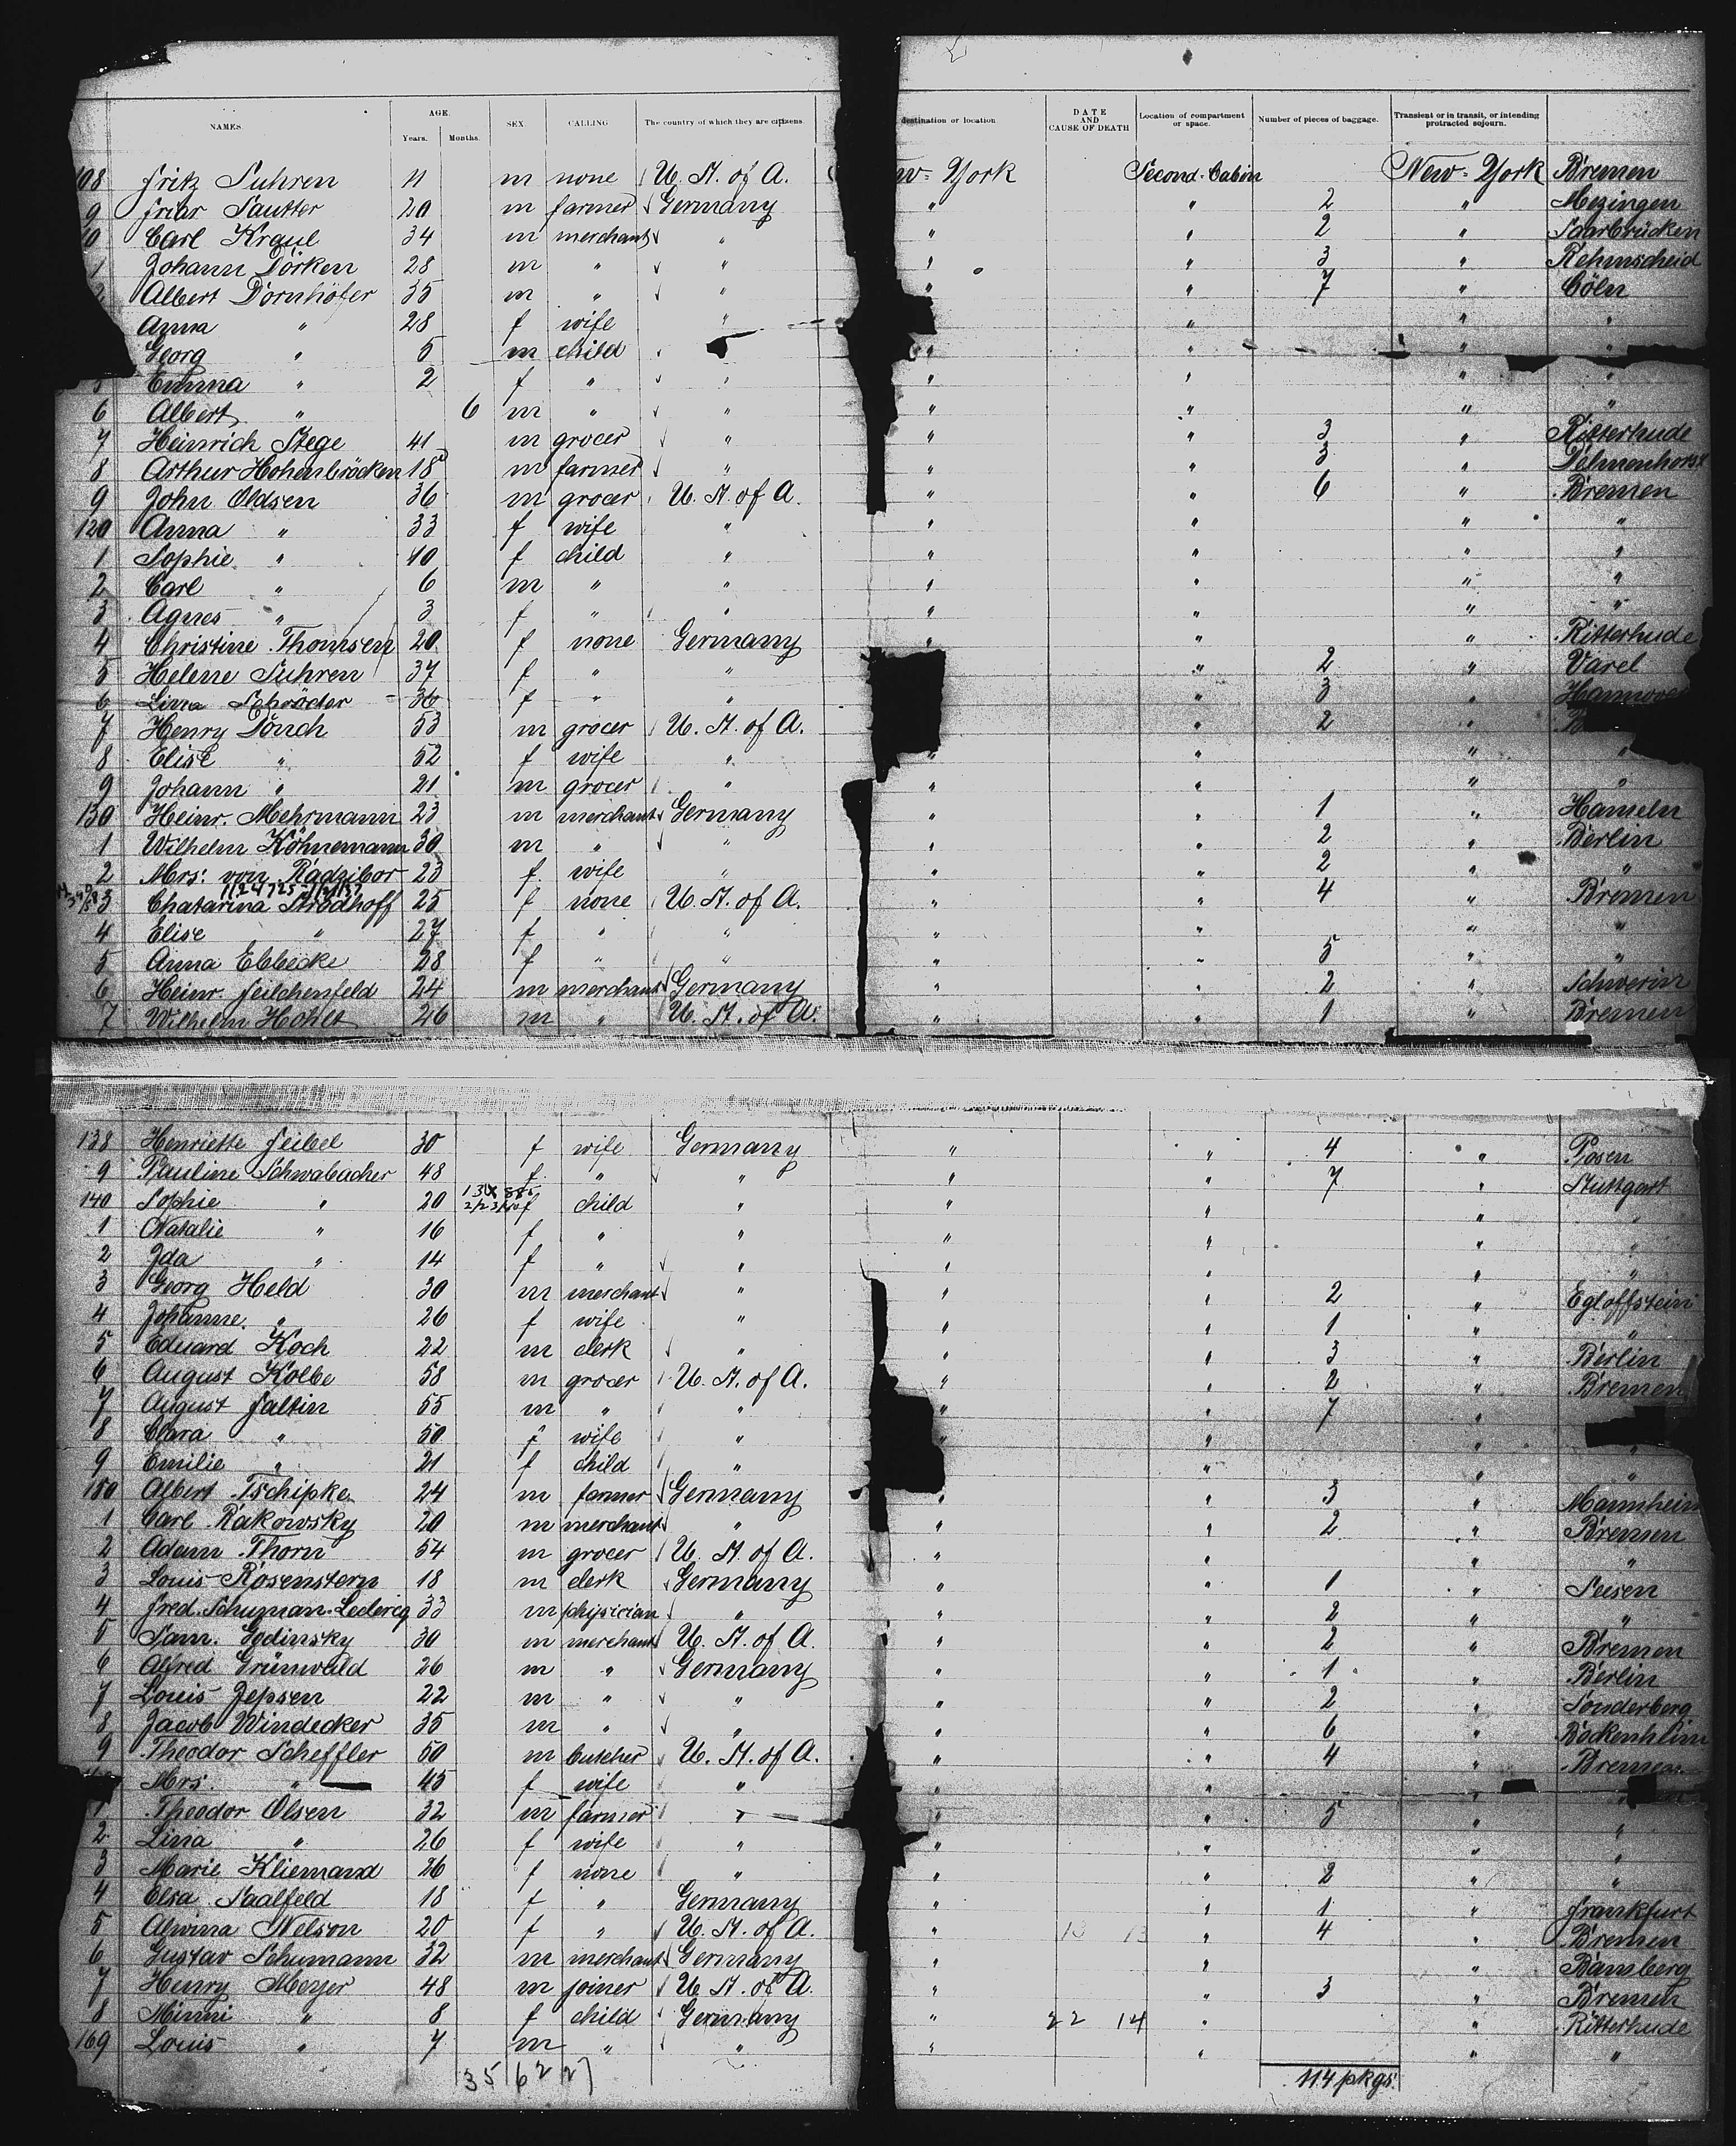 NAMES. AGE. Years. Months. SEX CALLING The country of which they are citizens destination or location DATE AND CAUSE OF DEATH Location of compartment or space. Number of pieces of baggage. Transient or in transit, or intending protracted sojourn.
108 Fritz Suhren 11 m none U. St. of A. w-York Second-Cabin New-York Bremen
9 Sautter 20 m farmer Germany " " 2 " Mezingen
10 Carl Kraul 34 m merchant " " " 2 " Saarbrücken
1 Johann Dörken 28 m " " " " 3 " Rehmscheid
2 Albert Dörnhöfer 35 m " " " " 7 " Cöln
Anna " 28 f wife " " " "
Georg " 5 m child " " " "
5 Emma " 2 f " " " " " "
6 Albert " 6 m " " " " " "
7 Heinrich Stege 41 m grocer " " " 3 " Ritterhude
8 Arthur Hohenbröcken 18 m farmer " " " 3 " Delmenhorst
9 John Oldsen 36 m grocer U. St. of A. " " 6 " Bremen
120 Anna " 33 f wife " " " " "
1 Sophie " 10 f child " " " " "
2 Carl " 6 m " " " " " "
3 Agnes " 3 f " " " " " "
4 Christine Thomsen 20 f none Germany " " " Ritterhude
5 Helene Suhren 37 f " " " 2 " Varel
6 Lina Schröder 36 f " " " 3 " Hannover
7 Henry Dönch 53 m grocer U. St. of A. " 2 "
8 Elise " 52 f wife " " " " "
9 Johann " 21 m grocer " " " " "
130 Heinr. Mehrmann 23 m merchant Germany " " 1 " Hameln
1 Wilhelm Köhnemann 30 m " " " " 2 " Berlin
2 Mrs. von Radzibor 23 f wife " " " 2 " "
3 Chatarina Strodhoff 25 f none U. St. of A. " " 4 " Bremen
4 Elise " 27 f " " " " " "
5 Anna Ebbecke 28 f " " " " 5 " "
6 Heinr. Feilchenfeld 24 m merchant Germany " " 2 " Schwerin
7 Wilhelm Hohlt 26 m " U. St. of A. " " 1 " Bremen
138 Henriette Feibel 30 f wife Germany " " 4 " Posen
9 Pauline Schwabacher 48 f " " " " 7 " Stuttgart
140 Sophie " 20 f child " " " " "
1 Natalie " 16 f " " " " " "
2 Ida " 14 f " " " " " "
3 Georg Held 30 m merchant " " " 2 " Egloffstein
4 Johanne " 26 f wife " " " 1 " "
5 Eduard Koch 22 m clerk " " " 3 " Berlin
6 August Kolbe 58 m grocer U. St. of A. " " 2 " Bremen
7 August Faltin 55 m " " " " 7 "
8 Clara " 50 f wife " " " " "
9 Emilie " 21 f child " " " "
150 Albert Tschipke 24 m farmer Germany " " 3 " Mannheim
1 Carl Rakowsky 20 m merchant " " " 2 " Bremen
2 Adam Thorn 54 m grocer U. St. of A. " " " "
3 Louis Rosenstern 18 m clerk Germany " " 1 " Seesen
4 Fred. Schuman-Leclercq 33 m physician " " " 2 " "
5 Sam. Godinsky 30 m merchant U. St. of A. " " 2 " Bremen
6 Alfred Grünwald 26 m " Germany " " 1 " Berlin
7 Louis Jepsen 22 m " " " " 2 " Sonderberg
8 Jacob Windecker 35 m " " " " 6 " Bockenheim
9 Theodor Scheffler 50 m butcher U. St. of A. " " 4 " Bremen
Mrs. " 45 f wife " " " "
1 Theodor Olsen 32 m farmer " " " 5 " "
2 Lina " 26 f wife " " " " "
3 Marie Kliemand 26 f none " " " 2 " "
4 Elsa Saalfeld 18 f " Germany " " 1 " Frankfurt
5 Alwina Nelson 20 f " U. St. of A. " " 4 " Bremen
6 Gustav Schumann 32 m merchant Germany " " " Bamberg
7 Henry Meyer 48 m joiner U. St. of A. " " 3 " Bremen
8 Minni " 8 f child Germany " 22 14 " " Ritterhude
169 Louis " 7 m " " " " " "
35 62 27 114 pkgs.